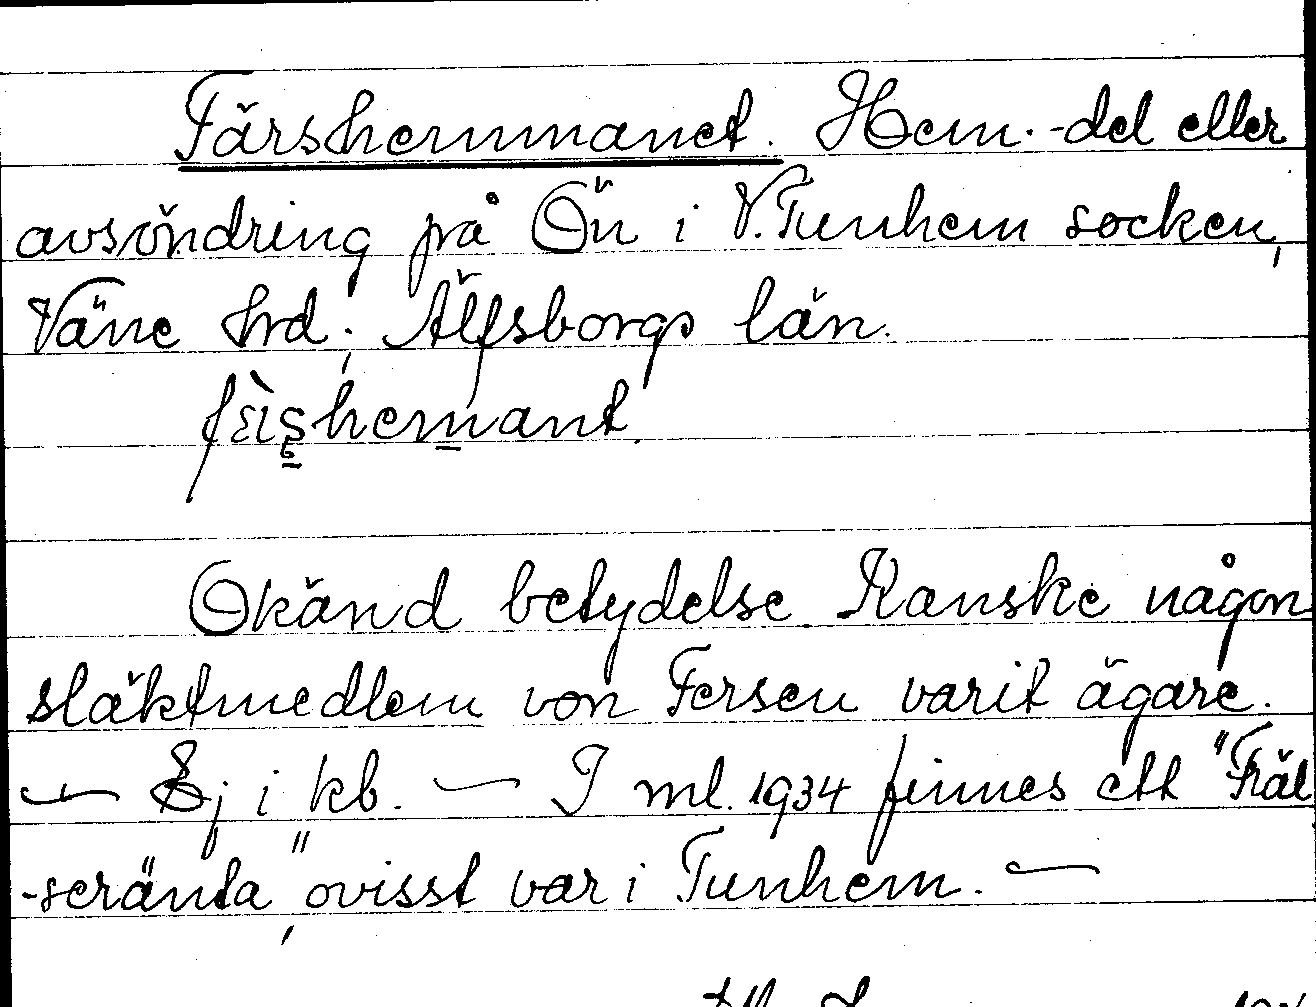 Färshemmanet. Hem.-del eller
avsöndring på Ön i V. Tunhem socken,
Väne hrd; Älfsborgs län.
Okänd betydelse. Kanske någon
släktmedlem von Fersen varit ägare.
— Ej i kb. — I ml. 1934 finnes ett "Fräl
-seränta", ovisst var i Tunhem. —